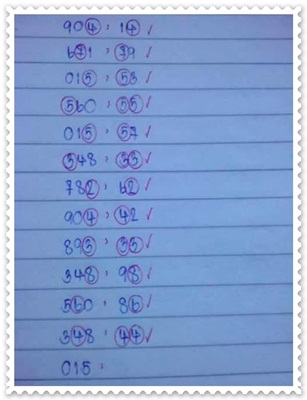 904 : 14 ✓
671 : 79 ✓
015 : 53 ✓
560 : 55 ✓
015 : 57 ✓
348 : 35 ✓
782 : 62 ✓
904 : 42 ✓
895 : 35 ✓
348 : 98 ✓
560 : 86 ✓
348 : 44 ✓
015 :